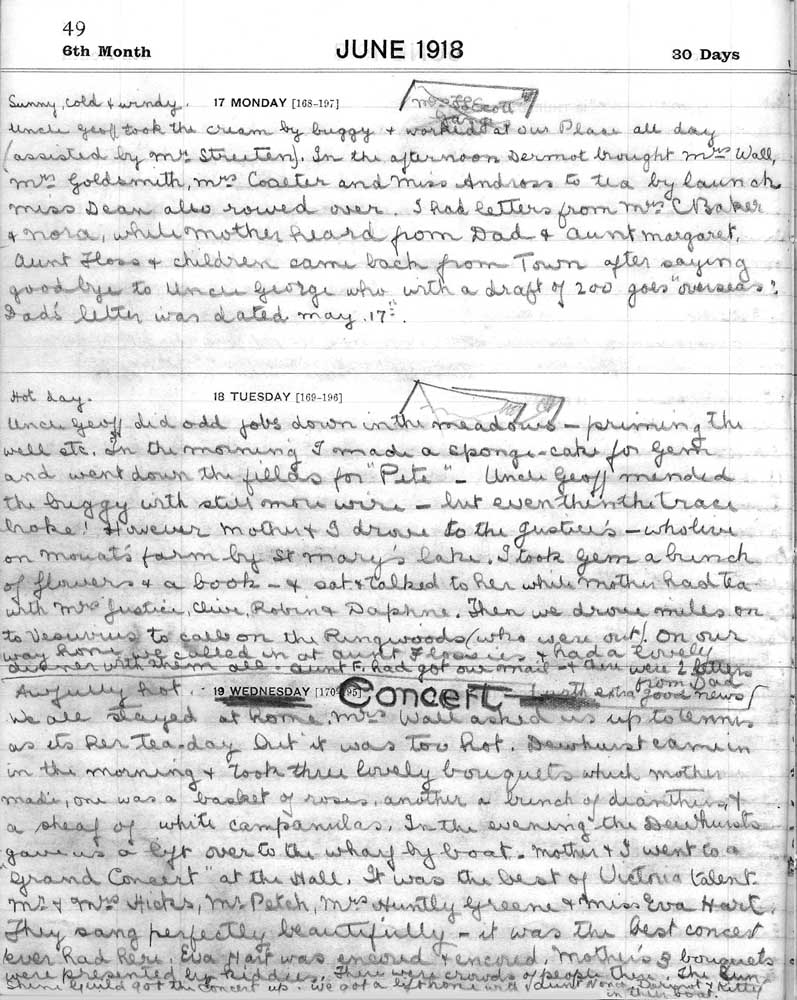 49
6th Month JUNE 1918 30 Days
Sunny, cold & windy. 17 MONDAY [168-197] Mrs Scott
Uncle Geoff took the cream by buggy & worked at our Place all day
(assisted by Mr Streeten). In the afternoon Dermot brought Mrs Wall,
Mrs Goldsmith, Mrs Coaeter and Miss Andross to tea by launch
Miss Dean also rowed over. I had letters from Mrs C Baker
& Nora, while Mother heard from Dad & Aunt Margaret.
Aunt Floss & children came back from Town after saying
goodbye to Uncle George who with a draft of 200 goes "overseas".
Dad's letter was dated May 17th.
Hot day. 18 TUESDAY [169-196]
Uncle Geoff did odd jobs down in the meadows — priming the
well etc. In the morning I made a sponge-cake for Gem
and went down the fields for "Pete" — Uncle Geoff mended
the buggy with still more wire — but even then the trace
broke! However Mother & I drove to the Justice's — who live
on Mouat's farm by St Mary's lake. I took Gem a bunch
of flowers & a book — & sat & talked to her while Mother had tea
with Mrs Justice, Clive, Robin & Daphne. Then we drove miles on
to Vesuvius to call on the Ringwoods (who were out). On our
way home we called in at Aunt Flossie's & had a lovely
dinner with them all. Aunt F. had got our mail & there were 2 letters
from Dad
Awfully hot. 19 WEDNESDAY [170-195] Concert with extra good news
We all stayed at home. Mrs Wall asked us up to tennis
as its her tea-day but it was too hot. Dewhurst came in
in the morning & took three lovely bouquets which Mother
made, one was a basket of roses, another a bunch of dianthus, &
a sheaf of white campanulas. In the evening the Dewhursts
gave us a lift over to the wharf by boat. Mother & I went to a
"Grand Concert" at the Hall. It was the best of Victoria talent.
Mr & Mrs Hicks, Mr Petch, Mrs Huntly Greene & Miss Eva Hart.
They sang perfectly beautifully — it was the best concert
ever had here. Eva Hart was encored & encored. Mother's 3 bouquets
were presented by kiddies. There were crowds of people there. The Sun-
shine Guild got the concert up. We got a lift home with Aunt Nonce, Dermot & Kitty
in their boat.